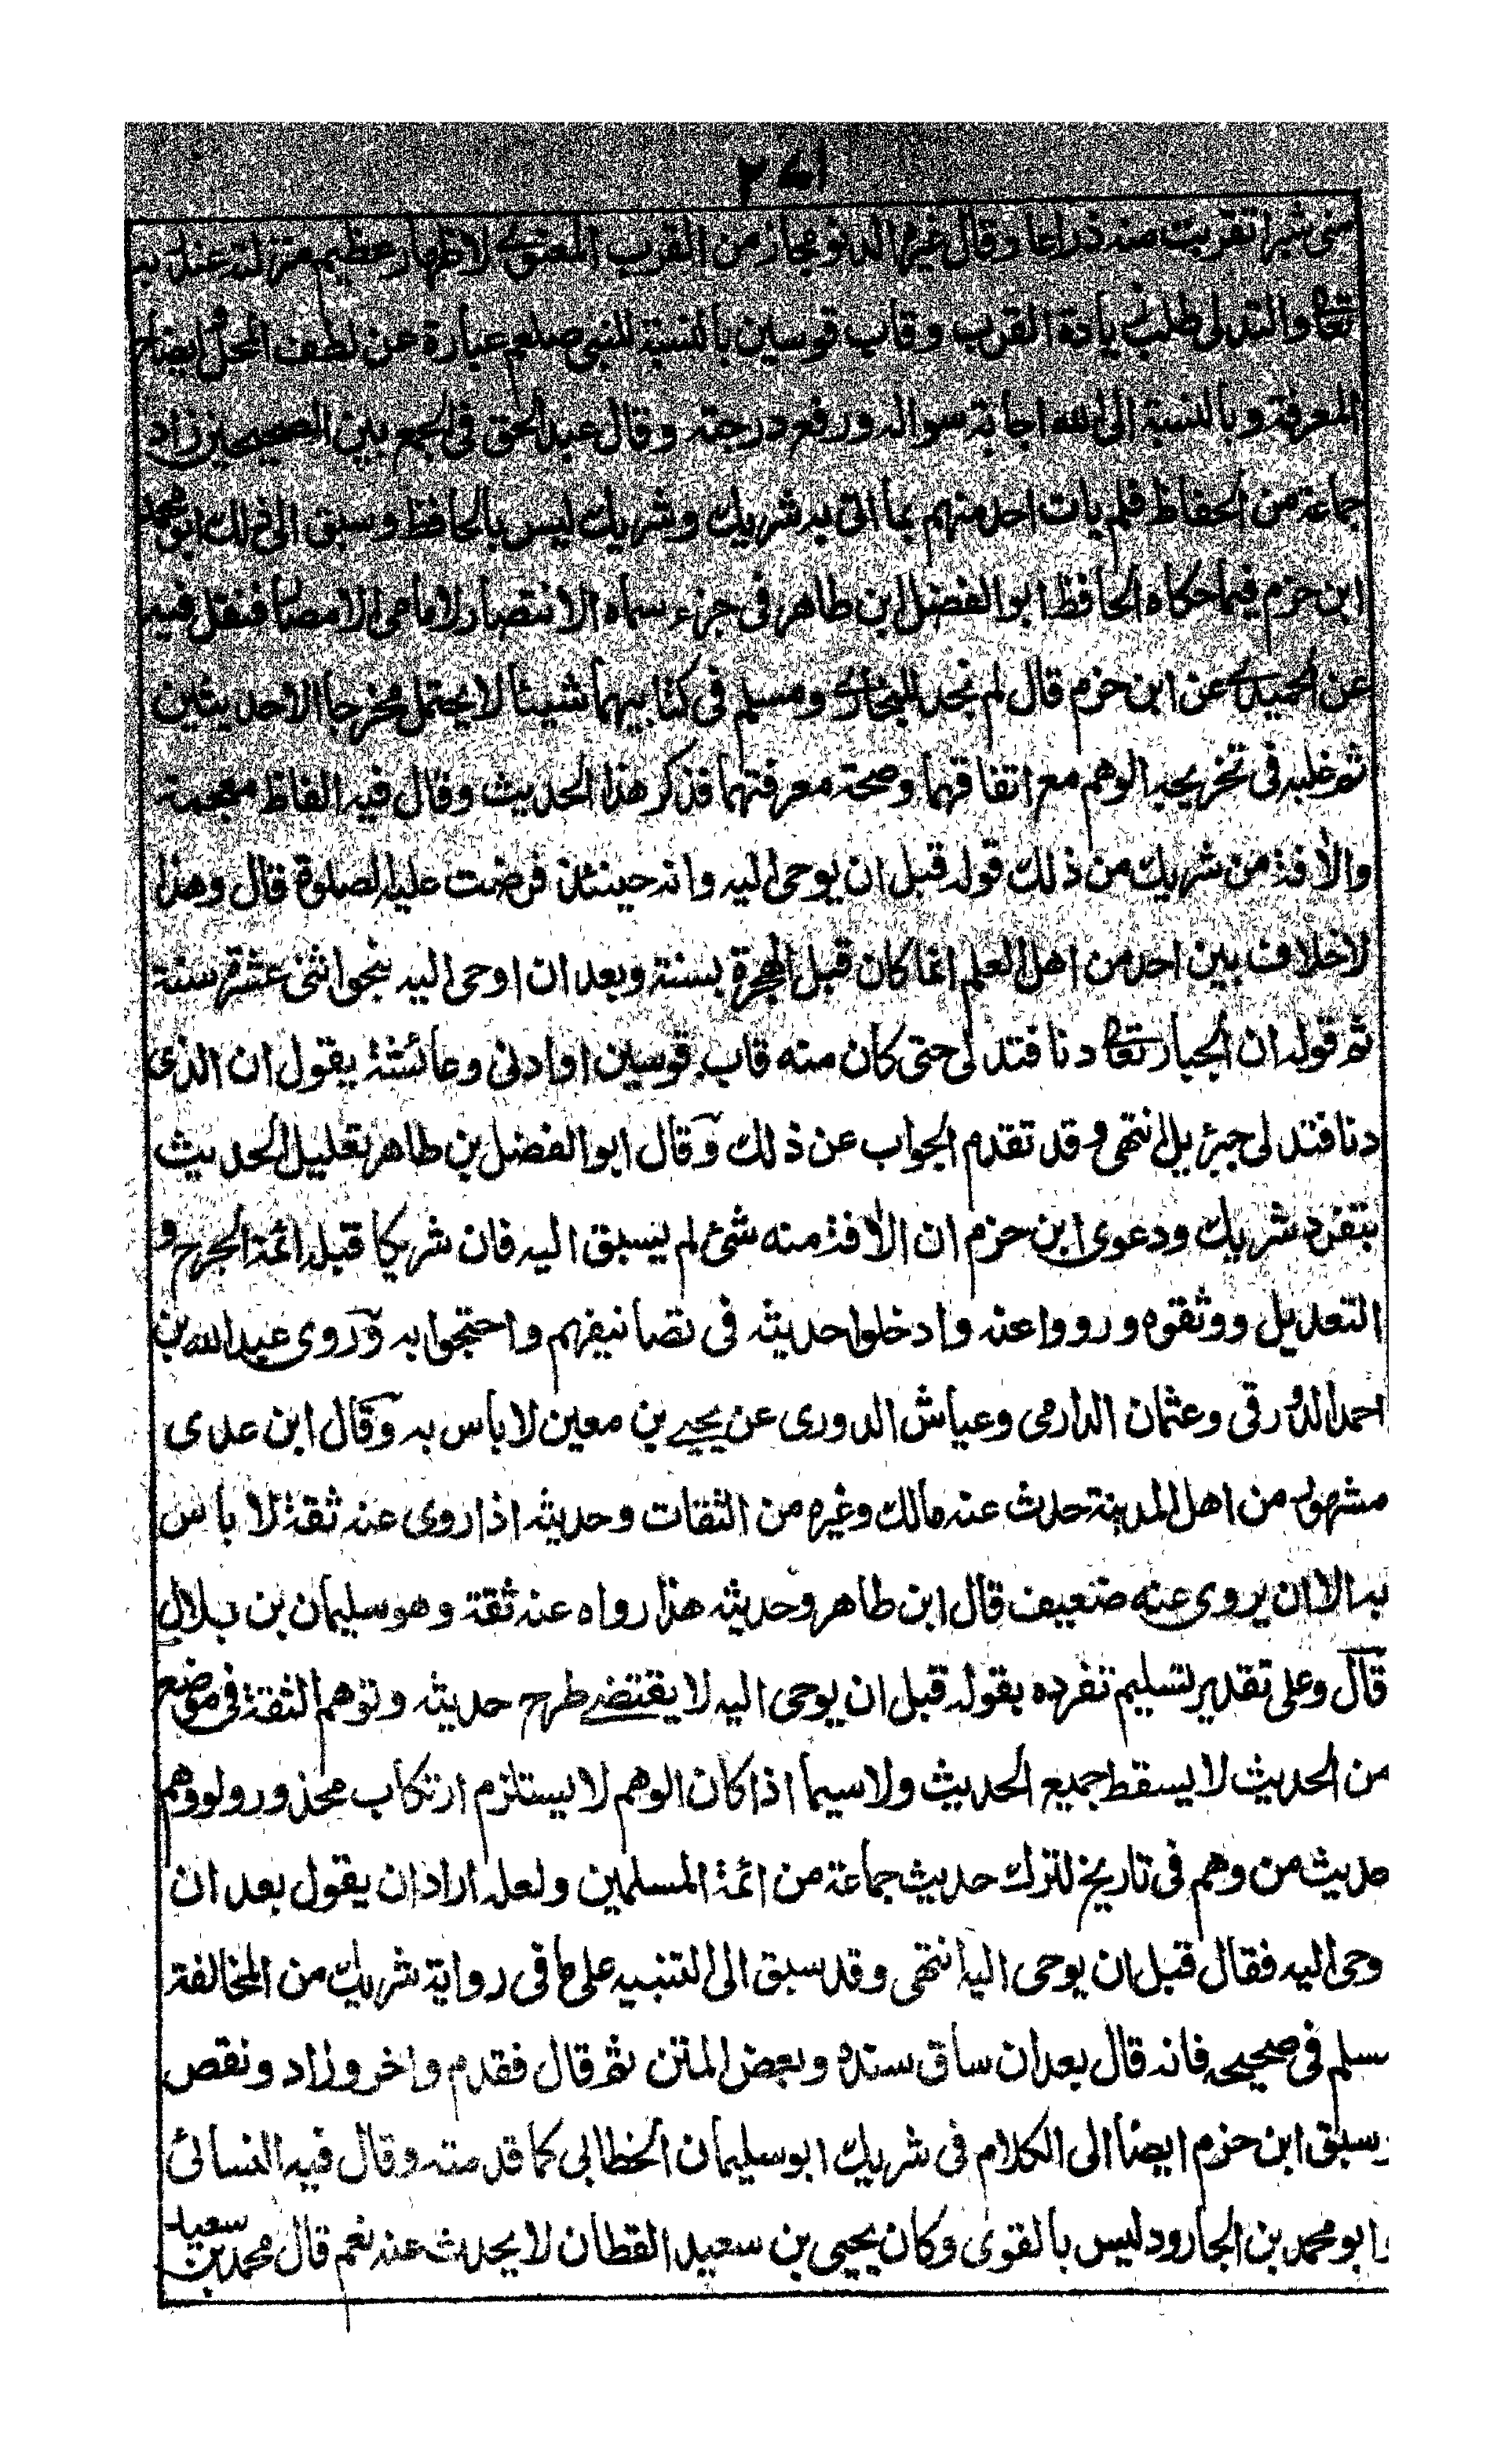 ٢٧١
منى شبرا تقربت منه ذراعا وقال غيره الدنو مجاز من القرب المعنوي لاظهار عظيم منزلته عند ربه
تعالى والتدلى طلب زيادة القرب وقاب قوسين بالنسبة للنبى صلعم عبارة عن لطف المحل وايضاح
المعرفة وبالنسبة الى الله اجابة سواله ورفع درجته وقال عبد الحق فى الجمع بين الصحيحين زاد
جماعة من الحفاظ فلم يات احد منهم بما اتى به شريك وشريك ليس بالحافظ وسبق الى ذلك ابو محمد
ابن حزم فيما حكاه الحافظ ابو الفضل ابن طاهر فى جزء سماه الانتصار لامامى الامصار فنقل فيه
عن الحميدي عن ابن حزم قال لم نجد للبخاري ومسلم فى كتابيهما شيئا لا يحتمل مخرجا الا حديثين
ثم غلبه فى تخريجه الوهم مع اتفاقهما وصحة معرفتهما فذكر هذا الحديث وقال فيه الفاظ معجمة
والافة من شريك من ذلك قوله قبل ان يوحى اليه وانه حينئذ فرضت عليه الصلوة قال وهذا
لا خلاف بين احد من اهل العلم انما كان قبل الهجرة بسنة وبعد ان اوحى اليه بنحو اثنى عشرة سنة
ثم قوله ان الجبار تعالى دنا فتدلى حتى كان منه قاب قوسين او ادنى وعائشة يقول ان الذى
دنا فتدلى جبرئيل انتهى وقد تقدم الجواب عن ذلك وقال ابو الفضل بن طاهر تعليل الحديث
بتفرد شريك ودعوى ابن حزم ان الافة منه شئ لم يسبق اليه فان شريكا قبله ائمة الجرح و
التعديل ووثقوه ورووا عنه وادخلوا حديثه فى تصانيفهم واحتجوا به وروى عبد الله بن
احمد الدورقى وعثمان الدارمى وعياش الدورى عن يحيى بن معين لا باس به وقال ابن عدى
مشهور من اهل المدينة حدث عنه مالك وغيره من الثقات وحديثه اذا روى عنه ثقة لا باس
به الا ان يروى عنه ضعيف قال ابن طاهر وحديثه هذا رواه عنه ثقة وهو سليمان بن بلال
قال وعلى تقدير تسليم تفرده بقوله قبل ان يوحى اليه لا يقتضى طرح حديثه وتوهم الثقة فى موضع
من الحديث لا يسقط جميع الحديث ولا سيما اذا كان الوهم لا يستلزم ارتكاب محذور ولو وهم
حديث من وهم فى تاريخ لترك حديث جماعة من ائمة المسلمين ولعله اراد ان يقول بعد ان
وحى اليه فقال قبل ان يوحى اليه انتهى وقد سبق الى التنبيه على ما فى رواية شريك من المخالفة
مسلم فى صحيحه فانه قال بعد ان ساق سنده وبعض المتن ثم قال فقدم واخر وزاد ونقص
وسبق ابن حزم ايضا الى الكلام فى شريك ابو سليمان الخطابى كما قدمته وقال فيه النسائى
وابو محمد بن الجارود ليس بالقوى وكان يحيى بن سعيد القطان لا يحدث عنه نعم قال محمد بن سعيد